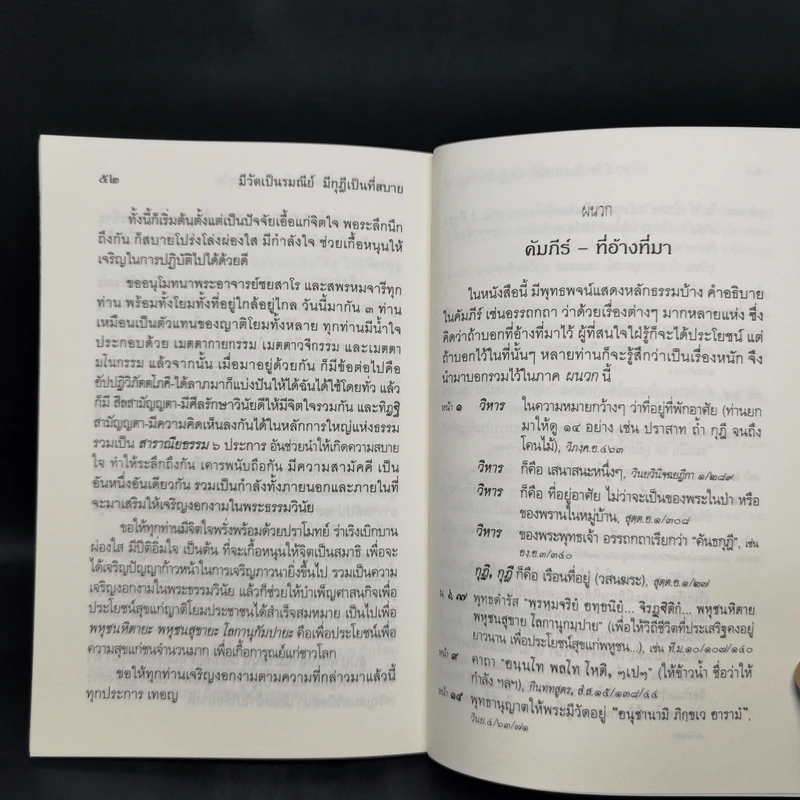 ๕๒ มีวัดเป็นรมณีย์ มีกุฎีเป็นที่สบาย
ทั้งนี้ก็เริ่มต้นตั้งแต่เป็นปัจจัยเอื้อแก่จิตใจ พอระลึกนึก
ถึงกัน ก็สบายโปร่งโล่งผ่องใส มีกำลังใจ ช่วยเกื้อหนุนให้
เจริญในการปฏิบัติไปได้ด้วยดี
ขออนุโมทนาพระอาจารย์ชยสาโร และสพรหมจารีทุก
ท่าน พร้อมทั้งโยมทั้งที่อยู่ใกล้อยู่ไกล วันนี้มากัน ๓ ท่าน
เหมือนเป็นตัวแทนของญาติโยมทั้งหลาย ทุกท่านมีน้ำใจ
ประกอบด้วย เมตตากายกรรม เมตตาวจีกรรม และเมตตา
มโนกรรม แล้วจากนั้น เมื่อมาอยู่ด้วยกัน ก็มีข้อต่อไปคือ
อัปปฏิวิภัตตโภคี-ได้ลาภมาก็แบ่งปันให้ได้ฉันได้ใช้โดยทั่ว แล้ว
ก็มี สีลสามัญญตา-มีศีลรักษาวินัยดีให้มีจิตใจรวมกัน และทิฏฐิ
สามัญญตา-มีความคิดเห็นลงกันได้ในหลักการใหญ่แห่งธรรม
รวมเป็น สาราณียธรรม ๖ ประการ อันช่วยนำให้เกิดความสบาย
ใจ ทำให้ระลึกถึงกัน เคารพนับถือกัน มีความสามัคคี เป็น
อันหนึ่งอันเดียวกัน รวมเป็นกำลังทั้งภายนอกและภายในที่
จะมาเสริมให้เจริญงอกงามในพระธรรมวินัย
ขอให้ทุกท่านมีจิตใจพรั่งพร้อมด้วยปราโมทย์ ร่าเริงเบิกบาน
ผ่องใส มีปีติอิ่มใจ เป็นต้น ที่จะเกื้อหนุนให้จิตเป็นสมาธิ เพื่อจะ
ได้เจริญปัญญาก้าวหน้าในการเจริญภาวนายิ่งขึ้นไป รวมเป็นความ
เจริญงอกงามในพระธรรมวินัย แล้วก็ช่วยให้บำเพ็ญศาสนกิจเพื่อ
ประโยชน์สุขแก่ญาติโยมประชาชนได้สำเร็จสมหมาย เป็นไปเพื่อ
พหุชนหิตายะ พหุชนสุขายะ โลกานุกัมปายะ คือเพื่อประโยชน์เพื่อ
ความสุขแก่ชนจำนวนมาก เพื่อเกื้อการุณย์แก่ชาวโลก
ขอให้ทุกท่านเจริญงอกงามตามความที่กล่าวมาแล้วนี้
ทุกประการ เทอญ
ผนวก
คัมภีร์ – ที่อ้างที่มา
ในหนังสือนี้ มีพุทธพจน์แสดงหลักธรรมบ้าง คำอธิบาย
ในคัมภีร์ เช่นอรรถกถา ว่าด้วยเรื่องต่างๆ มากหลายแห่ง ซึ่ง
คิดว่าถ้าบอกที่อ้างที่มาไว้ ผู้ที่สนใจใฝ่รู้ก็จะได้ประโยชน์ แต่
ถ้าบอกไว้ในที่นั้นๆ หลายท่านก็จะรู้สึกว่าเป็นเรื่องหนัก จึง
นำมาบอกรวมไว้ในภาค ผนวก นี้
หน้า ๑ วิหาร ในความหมายกว้างๆ ว่าที่อยู่ที่พักอาศัย (ท่านยก
มาให้ดู ๑๔ อย่าง เช่น ปราสาท ถ้ำ กุฎี จนถึง
โคนไม้), วิภงฺค.อ.๔๖๓
วิหาร ก็คือ เสนาสนะหนึ่งๆ, วินยวินิจฺฉยฎีกา ๑/๒๘๙
วิหาร ก็คือ ที่อยู่อาศัย ไม่ว่าจะเป็นของพระในป่า หรือ
ของพรานในหมู่บ้าน, สุตฺต.อ.๑/๓๐๘
วิหาร ของพระพุทธเจ้า อรรถกถาเรียกว่า “คันธกุฎี”, เช่น
องฺ.อ.๓/๓๔๐
กุฏิ, กุฎี ก็คือ เรือนที่อยู่ (วสนฆระ), สุตฺต.อ.๑/๒๗
น. ๖,๗๗ พุทธดำรัส “พฺรหฺมจริยํ อทฺธนิยํ... จิรฏฺฐิติกํ... พหุชนหิตาย
พหุชนสุขาย โลกานุกมฺปาย” (เพื่อให้วิถีชีวิตที่ประเสริฐคงอยู่
ยาวนาน เพื่อประโยชน์สุขแก่พหูชน...), เช่น ที.ม.๑๐/๑๐๗/๑๔๐
หน้า ๙ คาถา “อนฺนโท พลโท โหติ, ฯเปฯ” (ให้ข้าวน้ำ ชื่อว่าให้
กำลัง ฯลฯ), กินททสูตร, สํ.ส.๑๕/๑๓๘/๔๔
หน้า ๑๔ พุทธานุญาตให้พระมีวัดอยู่ “อนุชานามิ ภิกฺขเว อารามํ”,
วินย.๔/๖๓/๗๑